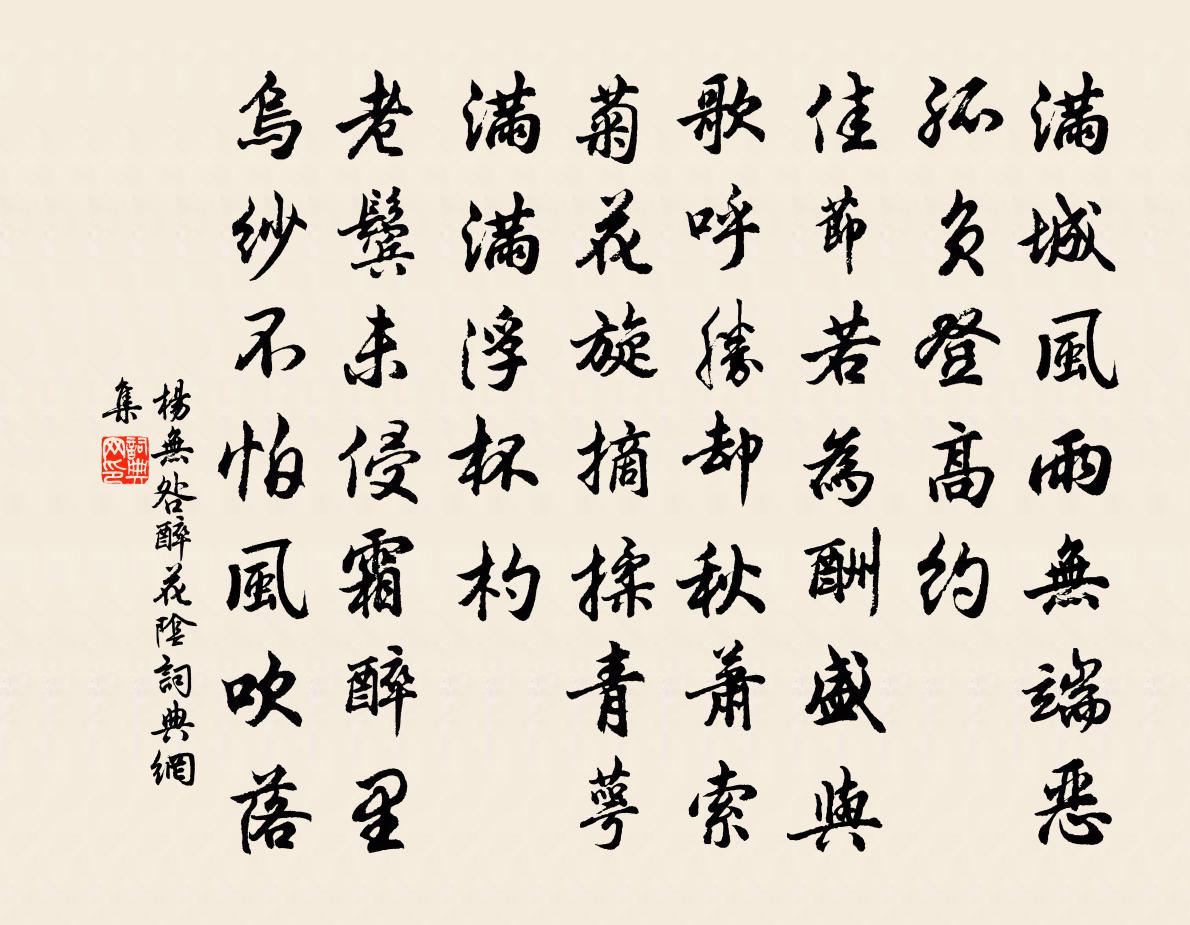 满城風雨無端惡
孤負登髙约
佳節若為酬盛與
歌呼勝却秋蕭索
菊花旋摘揉青萼
满满浮杯杓
老鬓未侵霜醉里
烏紗不怕風吹落
楊無咎醉花陰詞典網
集
詞典
网印